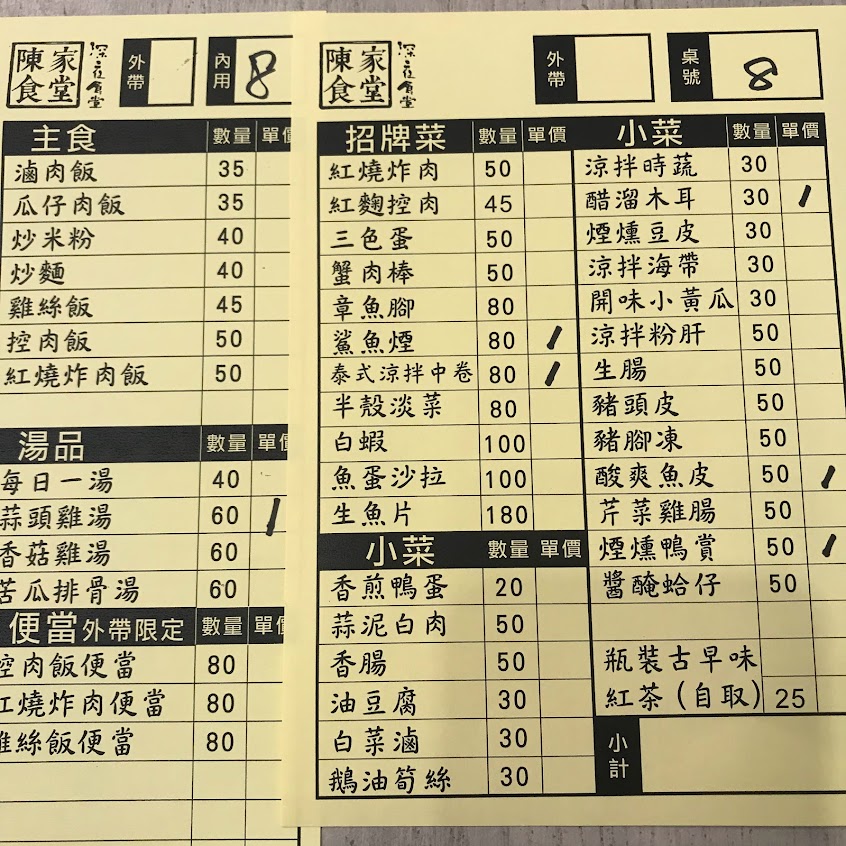 陳家食堂
深夜食堂
外帶
內用 8
主食 數量 單價
滷肉飯 35
瓜仔肉飯 35
炒米粉 40
炒麵 40
雞絲飯 45
控肉飯 50
紅燒炸肉飯 50
湯品 數量 單
每日一湯 40
蒜頭雞湯 60 /
香菇雞湯 60
苦瓜排骨湯 60
便當外帶限定 數量 單
控肉飯便當 80
紅燒炸肉便當 80
雞絲飯便當 80
陳家食堂
深夜食堂
外帶
桌號 8
招牌菜 數量 單價
紅燒炸肉 50
紅麴控肉 45
三色蛋 50
蟹肉棒 50
章魚腳 80
鯊魚煙 80 /
泰式涼拌中卷 80 /
半殼淡菜 80
白蝦 100
魚蛋沙拉 100
生魚片 180
小菜 數量 單價
香煎鴨蛋 20
蒜泥白肉 50
香腸 50
油豆腐 30
白菜滷 30
鵝油筍絲 30
小菜 數量 單價
涼拌時蔬 30
醋溜木耳 30 /
煙燻豆皮 30
涼拌海帶 30
開味小黃瓜 30
涼拌粉肝 50
生腸 50
豬頭皮 50
豬腳凍 50
酸爽魚皮 50 /
芹菜雞腸 50
煙燻鴨賞 50 /
醬醃蛤仔 50
瓶裝古早味
紅茶(自取) 25
小計